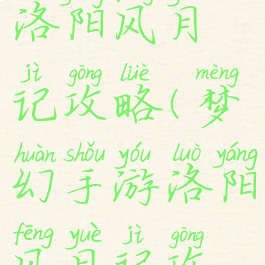 洛阳风月
jì gōng lüè mèng
记攻略(梦
huàn shǒu yóu luò yáng
幻手游洛阳
fēng yuè jì gōng
风月记攻